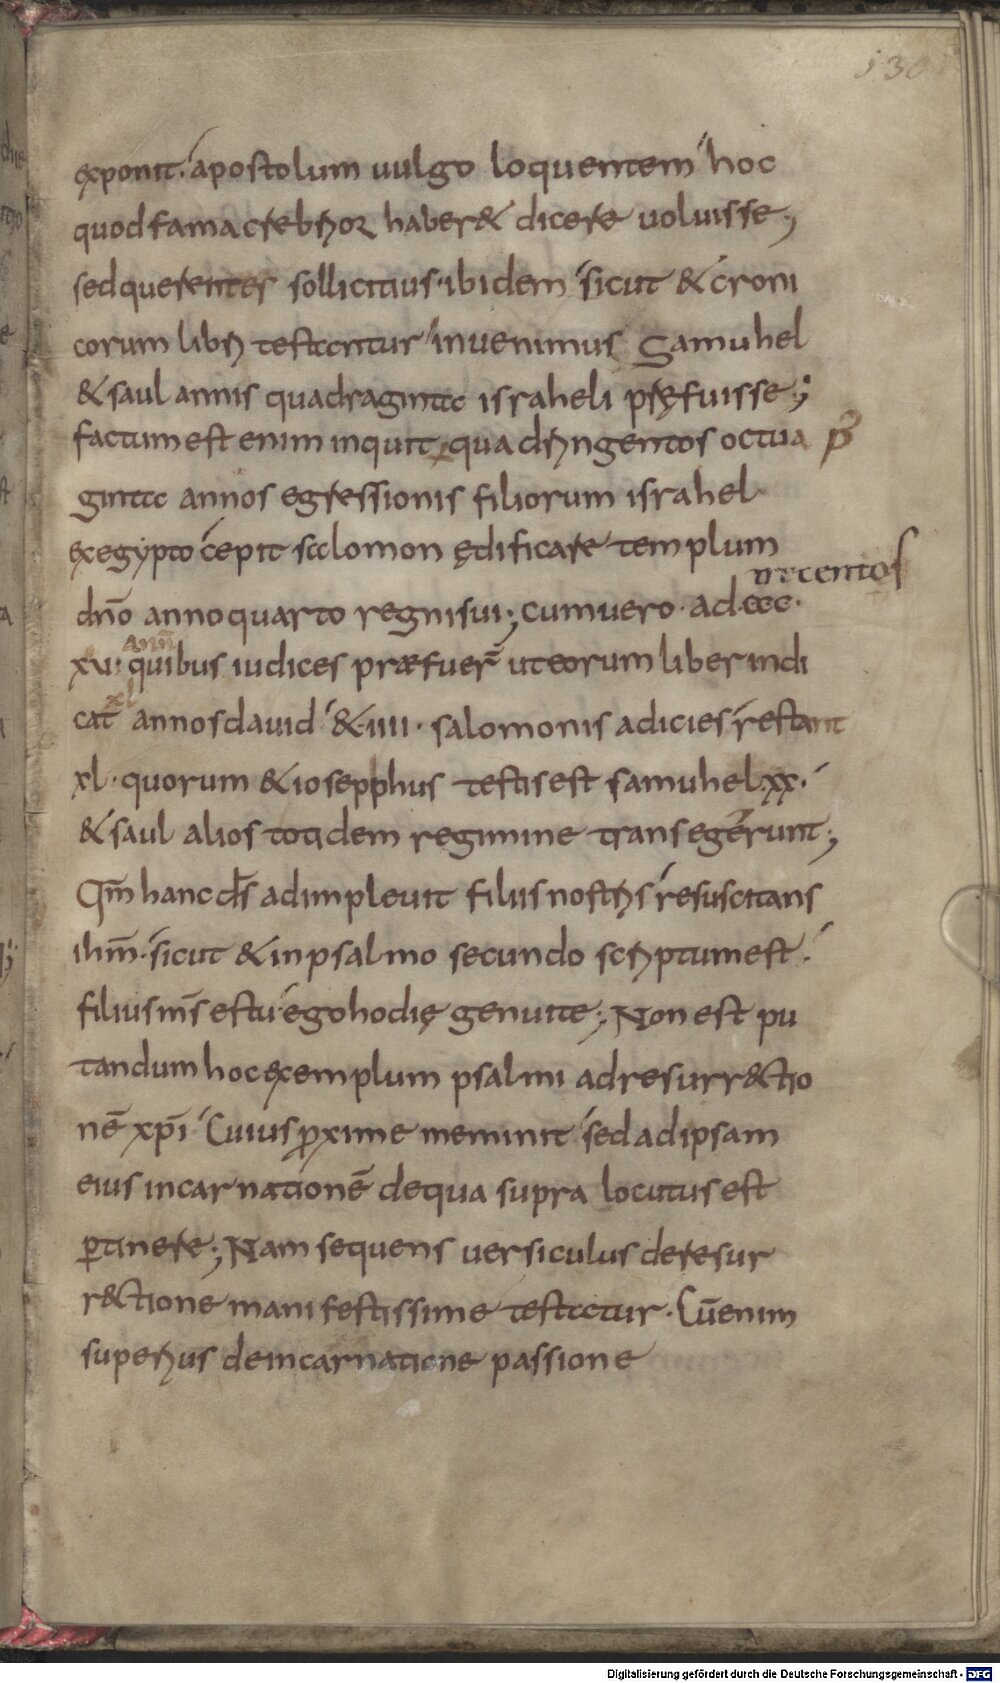 130
exponit. apostolum uulgo loquentem hoc
quod fama crebrior haber& dicere uoluisse;
sed querentes sollicitius. ibidem sicut & croni
corum libri testantur inuenimus Samuhel
& saul annis quadraginta israheli pręfuisse;
factum est enim inquit quadringentos octua
ginta annos egressionis filiorum israhel
exegypto cepit salomon ędificare templum
trecentos
dn̄o anno quarto regni sui; cum uero. ad. ccc.
ann̄
xv. quibus iudices præfuer̄ ut eorum liber indi
xl
cat annos dauid &. iiii. salomonis adicies restant
xl. quorum & iosepphus testis est samuhel. xx.
& saul alios totidem regimine transegerunt;
Qm̄ hanc ds̄ adimpleuit filiis nostris resuscitans
ihm̄. sicut & in psalmo secundo scriptum est.
filius ms̄ es tu ego hodię genui te; Non est pu
tandum hoc exemplum psalmi ad resurr&tio
nē xp̄i Cuius proxime meminit sed ad ipsam
eius incarnationē de qua supra locutus est
ptinere; Nam sequens uersiculus de resur
r&tione manifestissime testatur. Cū enim
superius de incarnatione passione
Digitalisierung gefördert durch die Deutsche Forschungsgemeinschaft - DFG